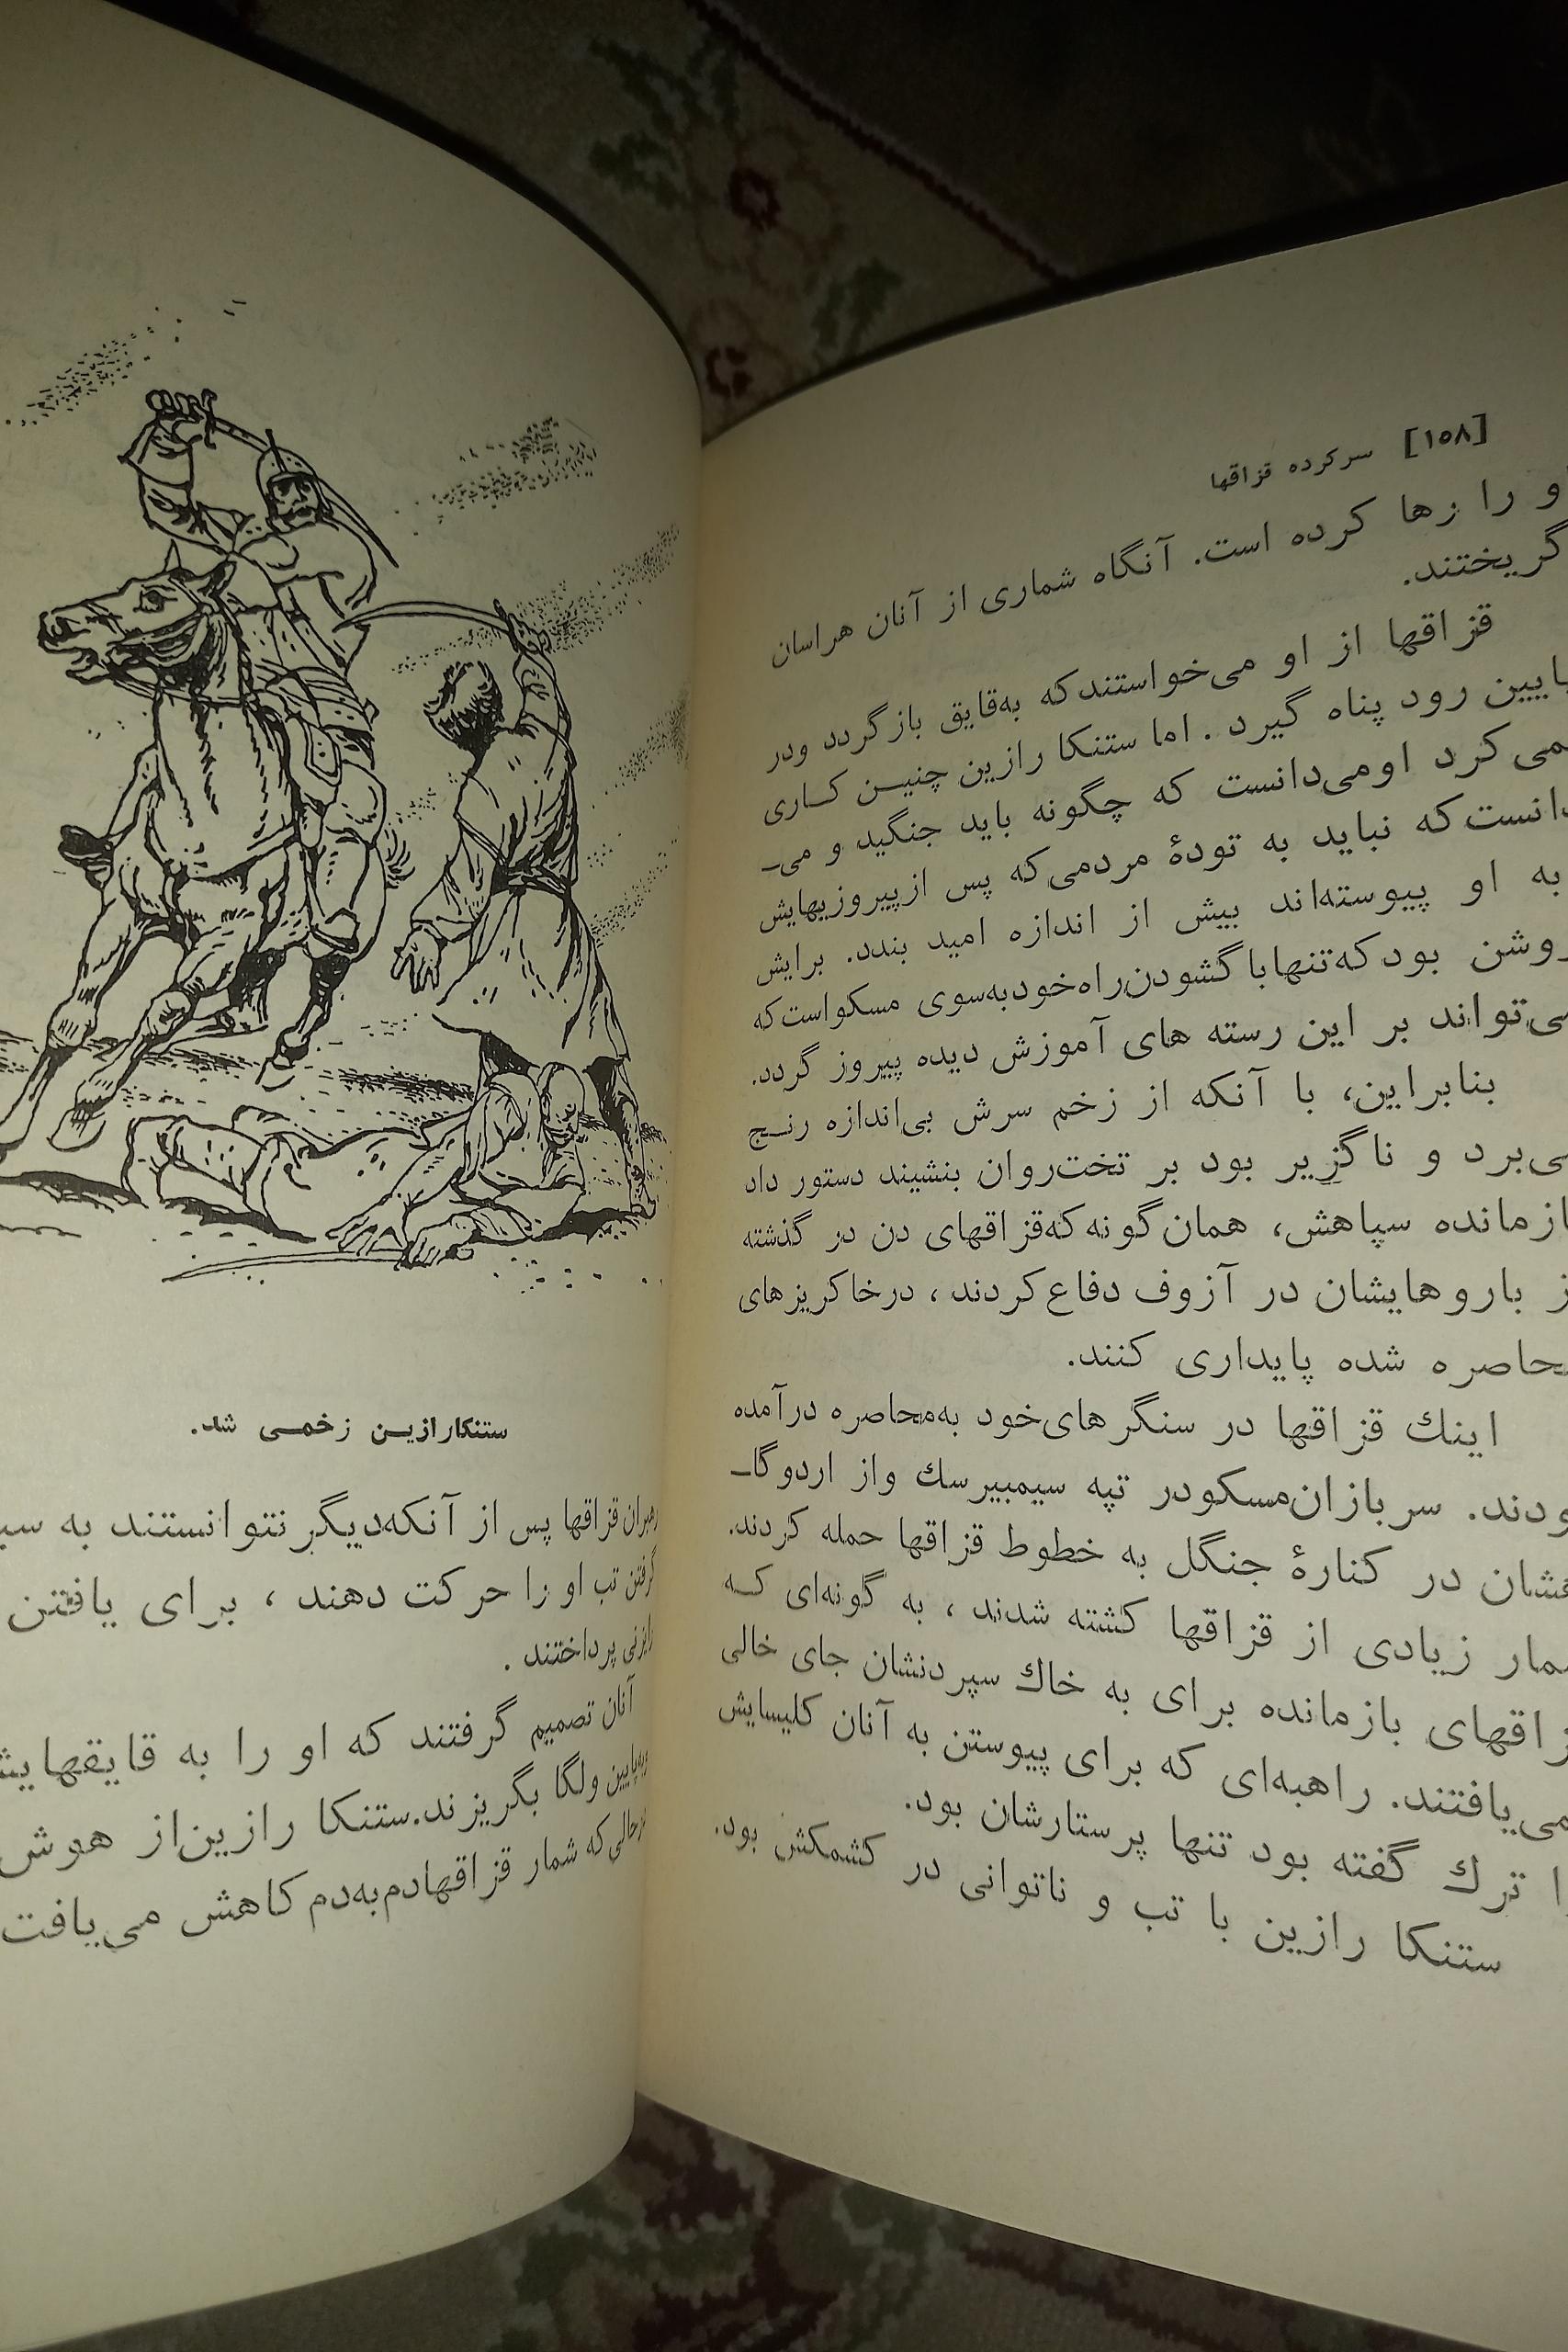 [۱۵۸] سرکرده قزاقها
و را رها کرده است. آنگاه شماری از آنان هراسان
گریختند.
قزاقها از او می‌خواستندکه به‌قایق بازگردد ودر
پایین رود پناه گیرد. اما ستنکا رازین چنیـن کـاری
می‌کرد اومی‌دانست که چگونه باید جنگید و می‌ـ
دانست‌که نباید به تودهٔ مردمی‌که پس ازپیروزیهایش
به او پیوسته‌اند بیش از اندازه امید بندد. برایش
روشن بودکه‌تنهاباگشودن‌راه‌خودبه‌سوی مسکواست‌که
می‌تواند بر این رسته های آموزش دیده پیروز گردد.
بنابراین، با آنکه از زخم سرش بی‌اندازه رنـج
می‌برد و ناگزیر بود بر تخت‌روان بنشیند دستور داد
بازمانده سپاهش، همان‌گونه‌که‌قزاقهای دن در گذشته
از باروهایشان در آزوف دفاع‌کردند، درخاکریزهای
محاصره شده پایداری کنند.
اینك قزاقها در سنگرهای‌خود به‌محاصره درآمده
بودند. سربازان‌مسکودر تپه سیمبیرسك واز اردوگاـ
هشان در کنارهٔ جنگل به خطوط قزاقها حمله کردند.
شمار زیادی از قزاقها کشته شدند، به گونه‌ای کـه
قزاقهای بازمانده برای به خاك سپردنشان جای خالی
نمی‌یافتند. راهبه‌ای که برای پیوستن به آنان کلیسایش
را ترك گفته بود تنها پرستارشان بود.
ستنکا رازین با تب و ناتوانی در کشمکش بود.
ستنکارازیـن زخمـی شد.
رهبران قزاقها پس از آنکه‌دیگر نتوانستند به
گرفتن تب او را حرکت دهند، برای یافتن
رایزنی پرداختند.
آنان تصمیم گرفتند که او را به
وبه‌پایین ولگا بگریزند.ستنکا رازین‌از هوش
درحالی‌که شمار قزاقهادم‌به‌دم کاهش می‌یافت